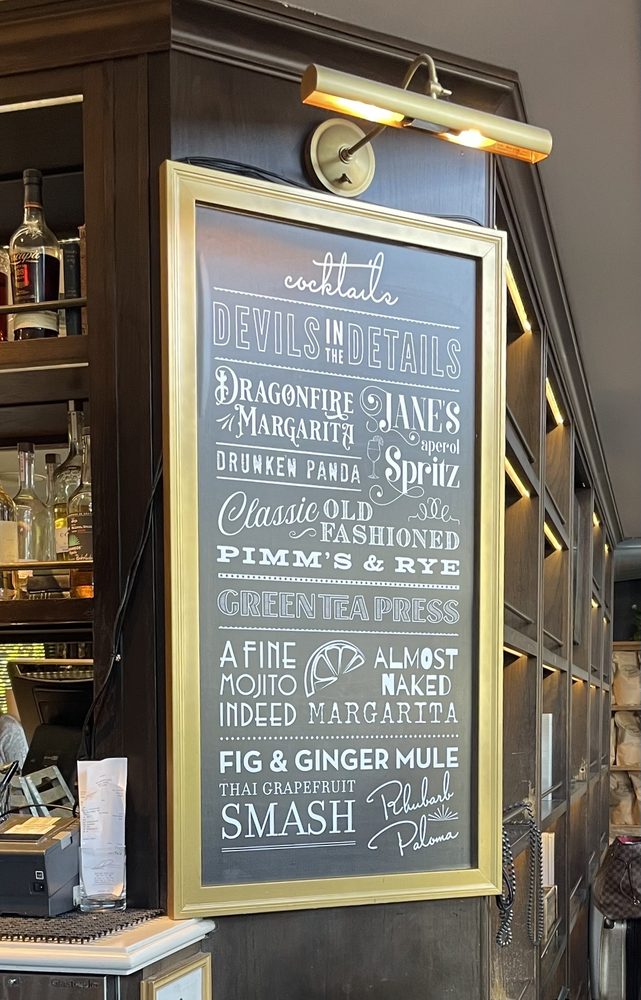 cocktails
DEVILS IN THE DETAILS
DRAGONFIRE
MARGARITA
JANE'S
aperol
Spritz
DRUNKEN PANDA
Classic OLD
FASHIONED
PIMM'S & RYE
GREEN TEA PRESS
A FINE
MOJITO
INDEED
ALMOST
NAKED
MARGARITA
FIG & GINGER MULE
THAI GRAPEFRUIT
SMASH
Rhubarb
Paloma